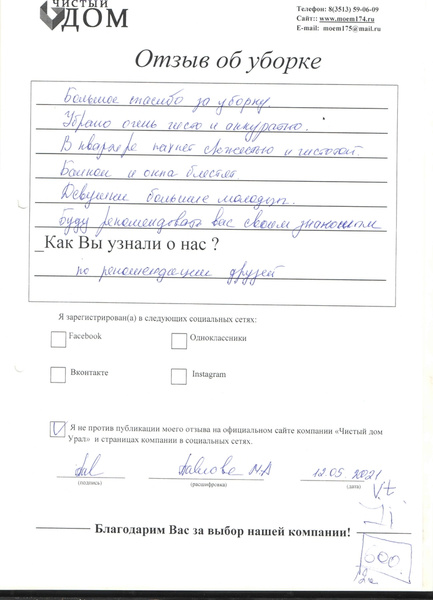 ЧИСТЫЙ
ДОМ
Телефон: 8(3513) 59-06-09
Сайт:: www.moem174.ru
E-mail: moem175@mail.ru
Отзыв об уборке
Большое спасибо за уборку.
Убрано очень чисто и аккуратно.
В квартире пахнет свежестью и чистотой.
Балкон и окна блестят.
Девушки большие молодцы.
Буду рекомендовать вас своим знакомым
_Как Вы узнали о нас ?
по рекомендации друзей
Я зарегистрирован(а) в следующих социальных сетях:
Facebook
Одноклассники
Вконтакте
Instagram
Я не против публикации моего отзыва на официальном сайте компании «Чистый дом
Урал» и страницах компании в социальных сетях.
Павлова М.А
12.05 2021
(подпись)
(расшифровка)
(дата)
Благодарим Вас за выбор нашей компании!
600.